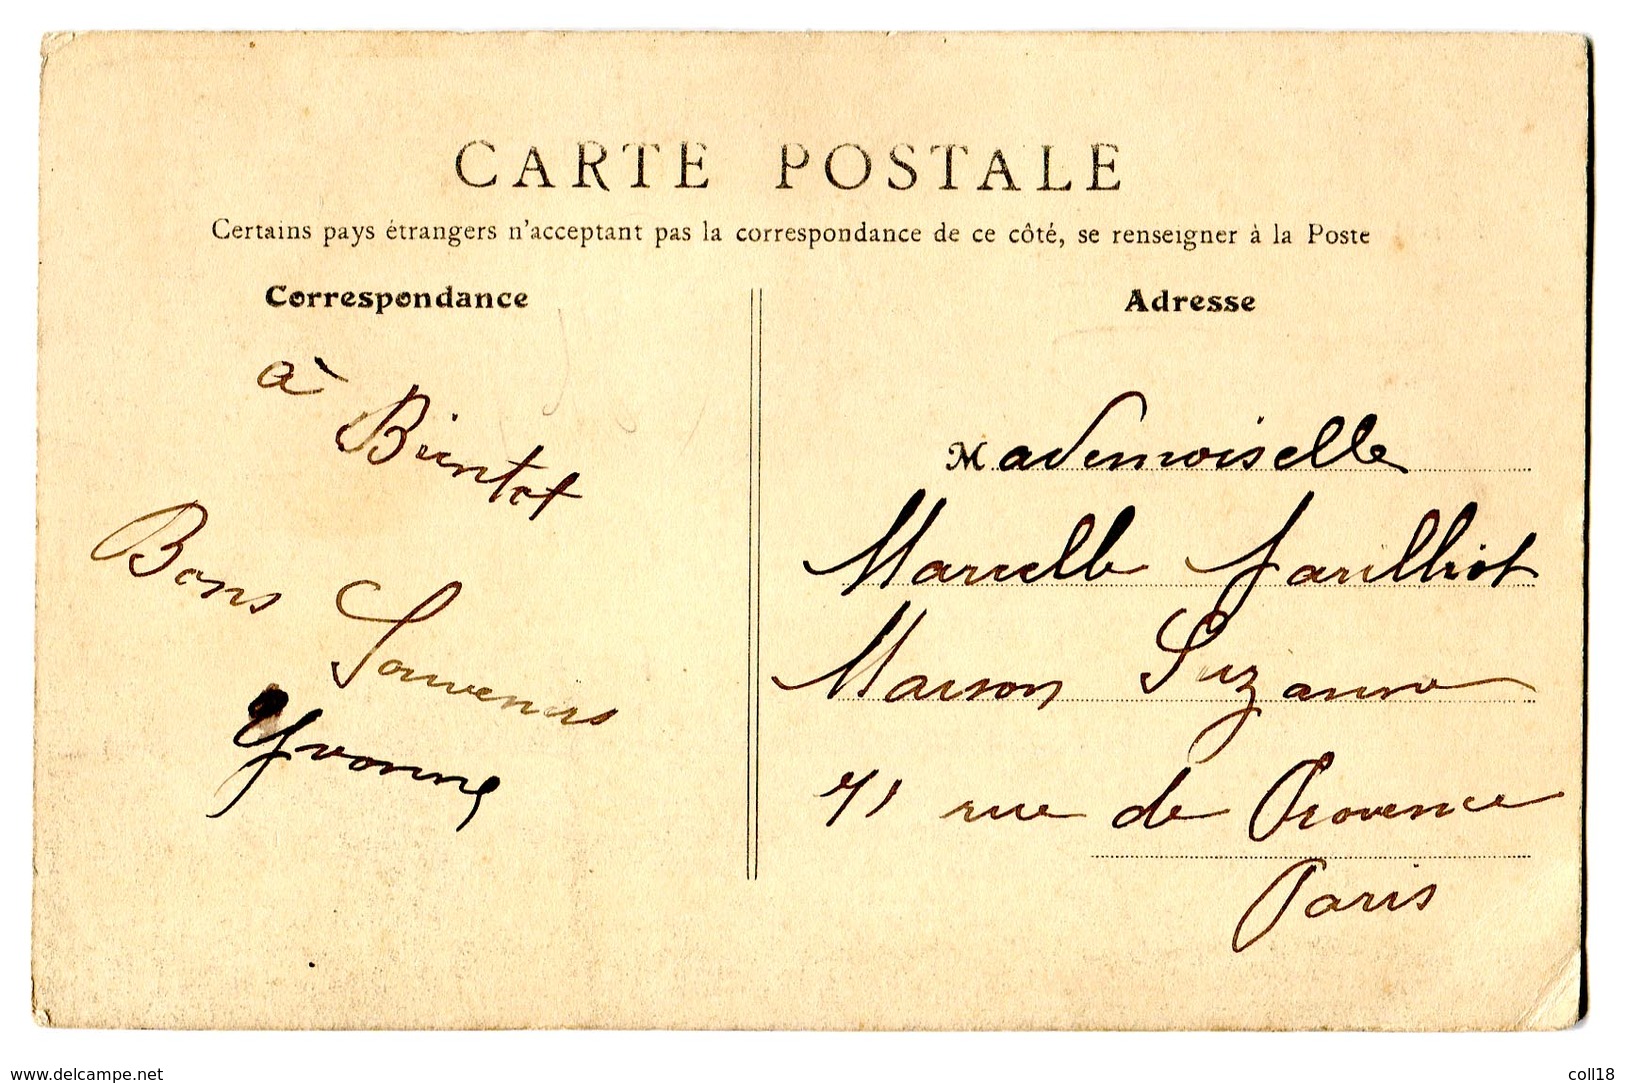 CARTE POSTALE
Certains pays étrangers n'acceptant pas la correspondance de ce côté, se renseigner à la Poste
Correspondance
à
Bientot
Bons
Souvenirs
Yvonne
Adresse
Mademoiselle
Marcelle
Maison Suzanne
71 rue de Provence
Paris
www.delcampe.net
coll18